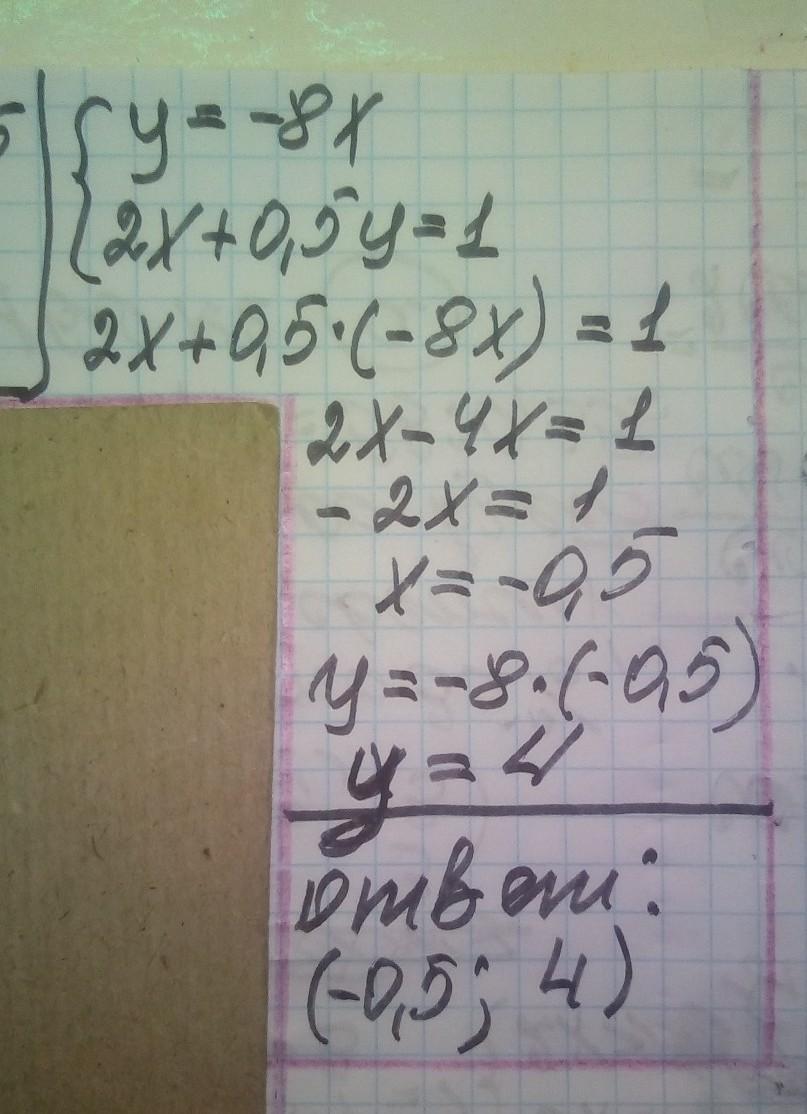 y = -8x
2x+0,5y=1
2x+0,5·(-8x) = 1
2x-4x= 1
- 2x= 1
x= -0,5
y= -8·(-0,5)
y = 4
Ответ:
(-0,5; 4)